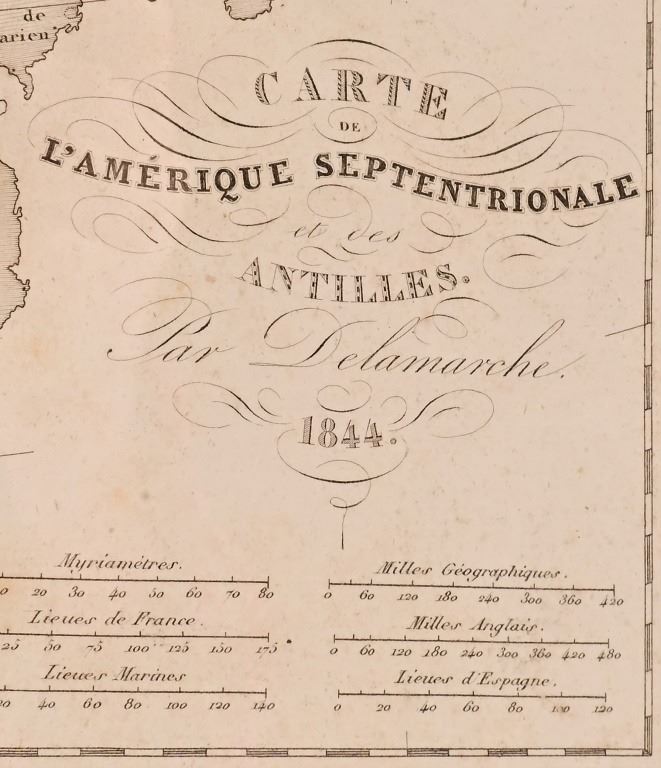 de
arien
CARTE
DE
L'AMÉRIQUE SEPTENTRIONALE
et des
ANTILLES.
Par Delamarche.
1844.
Myriamètres.
0 20 30 40 50 60 70 80
Lieues de France.
25 50 75 100 125 150 175
Lieues Marines
20 40 60 80 100 120 140
Milles Géographiques.
0 60 120 180 240 300 360 420
Milles Anglais.
0 60 120 180 240 300 360 420 480
Lieues d'Espagne.
0 20 40 60 80 100 120